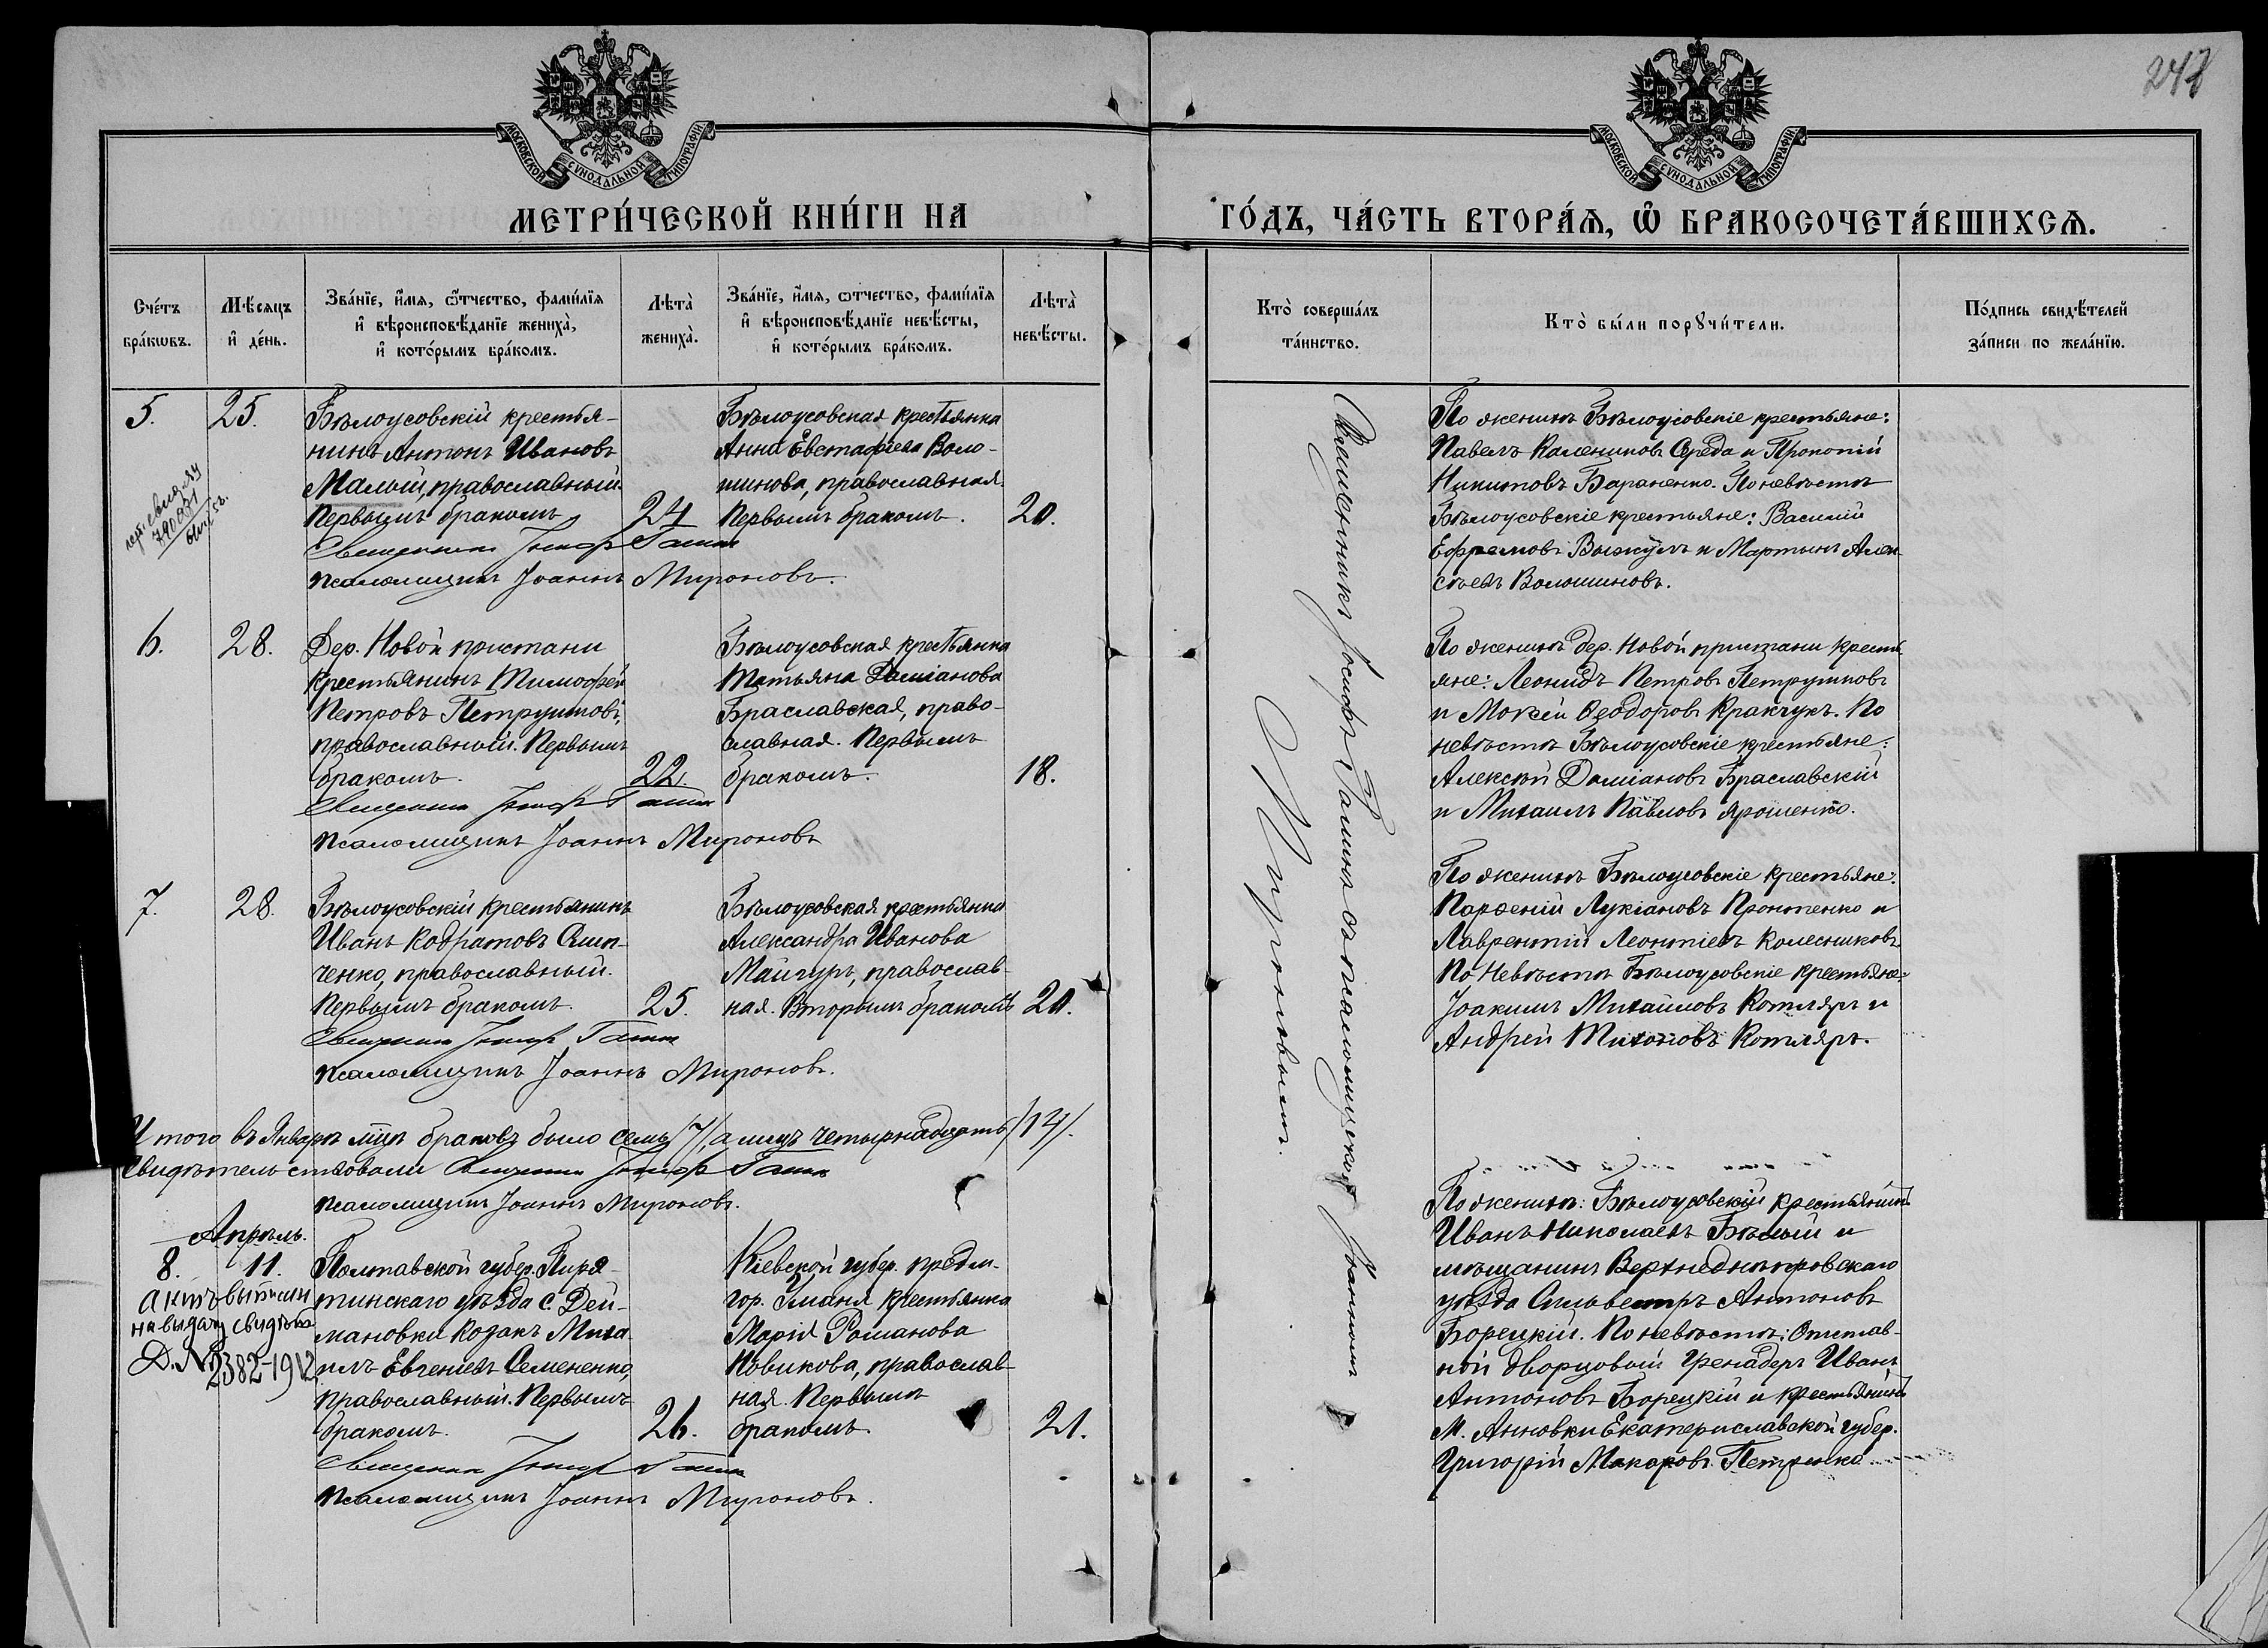 247
МОСКОВСКОЙ СѴНОДАЛЬНОЙ ТИПОГРАФІИ
МОСКОВСКОЙ СѴНОДАЛЬНОЙ ТИПОГРАФІИ
МЕТРИ́ЧЕСКОЙ КНИ́ГИ НА
ГО́ДЪ, ЧА́СТЬ ВТОРА́Ѧ, Ѽ БРАКОСОЧЕТА́ВШИХСѦ.
Сче́тъ бра́кѡвъ.
Мѣ́сяцъ и҆ де́нь.
Зва́нїе, и҆́мѧ, ѻ҆́тчество, фами́лїѧ
и҆ вѣроисповѣ́данїе жениха̀,
и҆ кото́рымъ бра́комъ.
Лѣта̀ жениха̀.
Зва́нїе, и҆́мѧ, ѻтчество, фами́лїѧ
и҆ вѣроисповѣ́данїе невѣ́сты,
и҆ кото́рымъ бра́комъ.
Лѣта̀ невѣ́сты.
Кто̀ соверша́лъ та́инство.
Кто̀ бы́ли порꙋчи́тели.
По́дпись свидѣ́телей за́писи по жела́нїю.
5.
25.
Бѣлоусовскій крестья-
нинъ Антонъ Ивановъ
Малый, православный.
Первымъ бракомъ
24
Бѣлоусовская крестьянка
Анна Евстафіева Воло-
шинова, православная.
Первымъ бракомъ.
20.
Священникъ Іосифъ Галинъ
псаломщикъ Іоаннъ Мироновъ.
По женихѣ Бѣлоусовскіе крестьяне:
Павелъ Калениковъ Середа и Прокопій
Никитовъ Бараненко. По невѣстѣ
Бѣлоусовскіе крестьяне: Василій
Ефремовъ Выжулъ и Мартынъ Алек
сѣевъ Волошиновъ.
6.
28.
Дер. Новой пристани
крестьянинъ Тимофей
Петровъ Петрушковъ,
православный. Первымъ
бракомъ.
22.
Бѣлоусовская крестьянка
Татьяна Даміанова
Браславская, право-
славная. Первымъ
бракомъ.
18.
Священникъ Іосифъ Галинъ
псаломщикъ Іоаннъ Мироновъ
По женихѣ дер. Новой пристани крестья
яне: Леонидъ Петровъ Петрушковъ
и Мокій Ѳеодоровъ Кракчукъ. По
невѣстѣ Бѣлоусовскіе крестьяне:
Алексѣй Даміановъ Браславскій
и Михаилъ Павловъ Ярошенко.
7.
28.
Бѣлоусовскій крестьянинъ
Иванъ Кодратовъ Симо-
ченко, православный.
Первымъ бракомъ.
25.
Бѣлоусовская крестьянка
Александра Иванова
Майгуръ, православ-
ная. Вторымъ бракомъ
20.
Священникъ Іосифъ Галинъ
псаломщикъ Іоаннъ Мироновъ.
По женихѣ Бѣлоусовскіе крестьяне:
Парѳеній Лукіановъ Пронтенко и
Лаврентій Леонтіевъ Колесниковъ
По невѣстѣ Бѣлоусовскіе крестьяне:
Іоакимъ Михайловъ Котляръ и
Андрей Тихоновъ Котляръ.
Итого въ Январѣ мцѣ браковъ было семь /7/, а лицъ четырнадцать /14/.
Свидѣтельствовали Священникъ Іосифъ Галинъ
псаломщикъ Іоаннъ Мироновъ.
Апрѣль.
8.
11.
актъ выписан
на выдачу свидѣт
Д. № 2382-1912
Полтавской губер. Пиря-
тинскаго уѣзда с. Дей-
мановки козакъ Миха
илъ Евгеніевъ Семененко,
православный. Первымъ
бракомъ.
26.
Кіевской губер. предм.
гор. Уманя крестьянка
Марія Романова
Новикова, православ-
ная. Первымъ
бракомъ.
21.
Священникъ Іосифъ Галинъ
псаломщикъ Іоаннъ Мироновъ.
По женихѣ: Бѣлоусовскій крестьянинъ
Иванъ Николаевъ Бѣлый и
мѣщанинъ Верхнеднѣпровскаго
уѣзда Сильвестръ Антоновъ
Борецкій. По невѣстѣ: Отстав-
ной дворцовый гренадеръ Иванъ
Антоновъ Борецкій и крестьянинъ
м. Анновки Екатериславской губер.
Григорій Макаровъ Петренко
Священникъ Іосифъ Галинъ съ псаломщикомъ Іоанномъ
Мироновымъ.